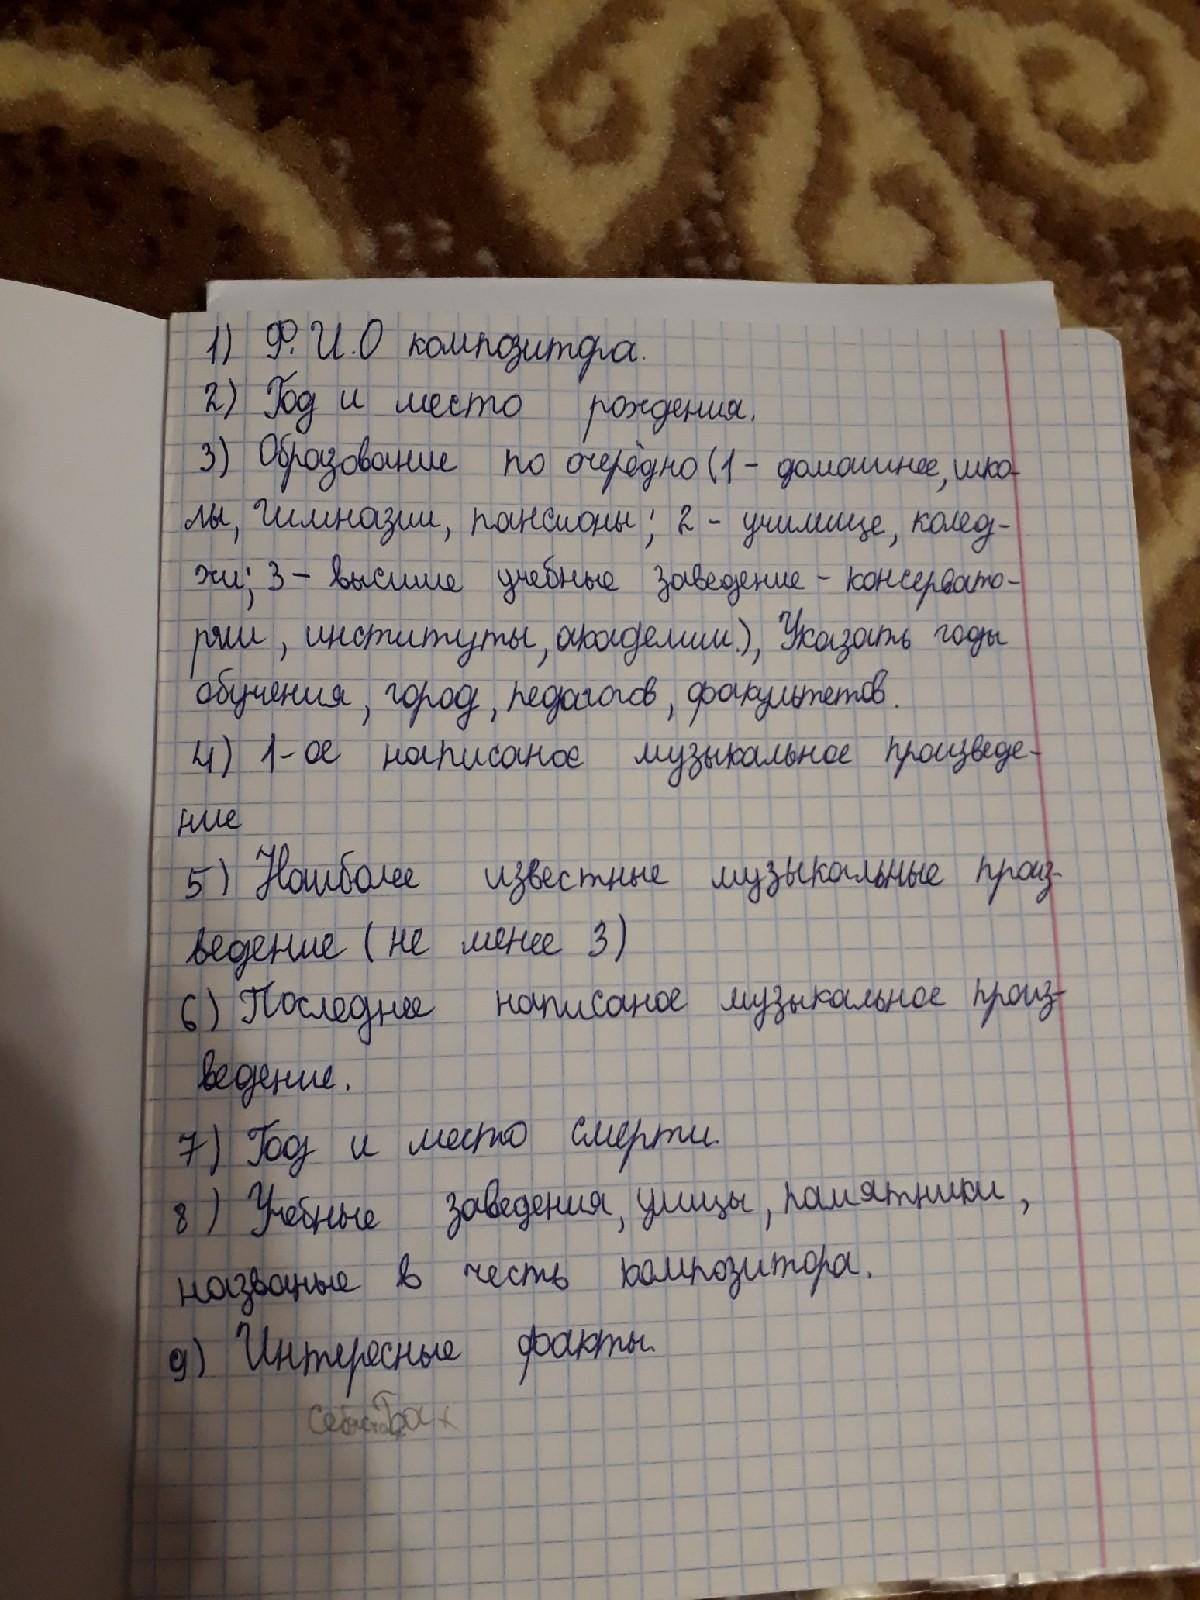 1) Ф.И.О композитра.
2) Год и место рождения.
3) Образование по очерёдно (1 - домашнее, шко-
лы, гимназии, пансионы; 2 - училище, колед-
жи; 3 - высшие учебные заведение - консервато-
рии, институты, академии.), Указать годы
обучения, город, педагогов, факультетов.
4) 1-ое написаное музыкальное произведе-
ние
5) Наиболее известные музыкальные произ-
ведение (не менее 3)
6) Последнее написаное музыкальное произ-
ведение.
7) Год и место смерти.
8) Учебные заведения, улицы, памятники,
названые в честь композитора.
9) Интересные факты.
Бах